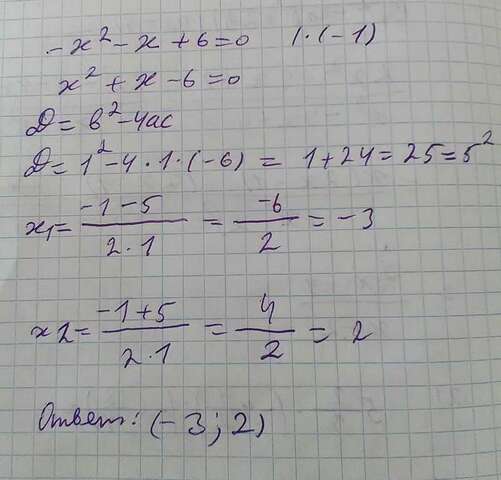 -x² - x + 6 = 0 | · (-1)
x² + x - 6 = 0
D = b² - 4ac
D = 1² - 4 · 1 · (-6) = 1 + 24 = 25 = 5²
x₁ = (-1 - 5)/(2 · 1) = -6/2 = -3
x₂ = (-1 + 5)/(2 · 1) = 4/2 = 2
Ответ: (-3; 2)